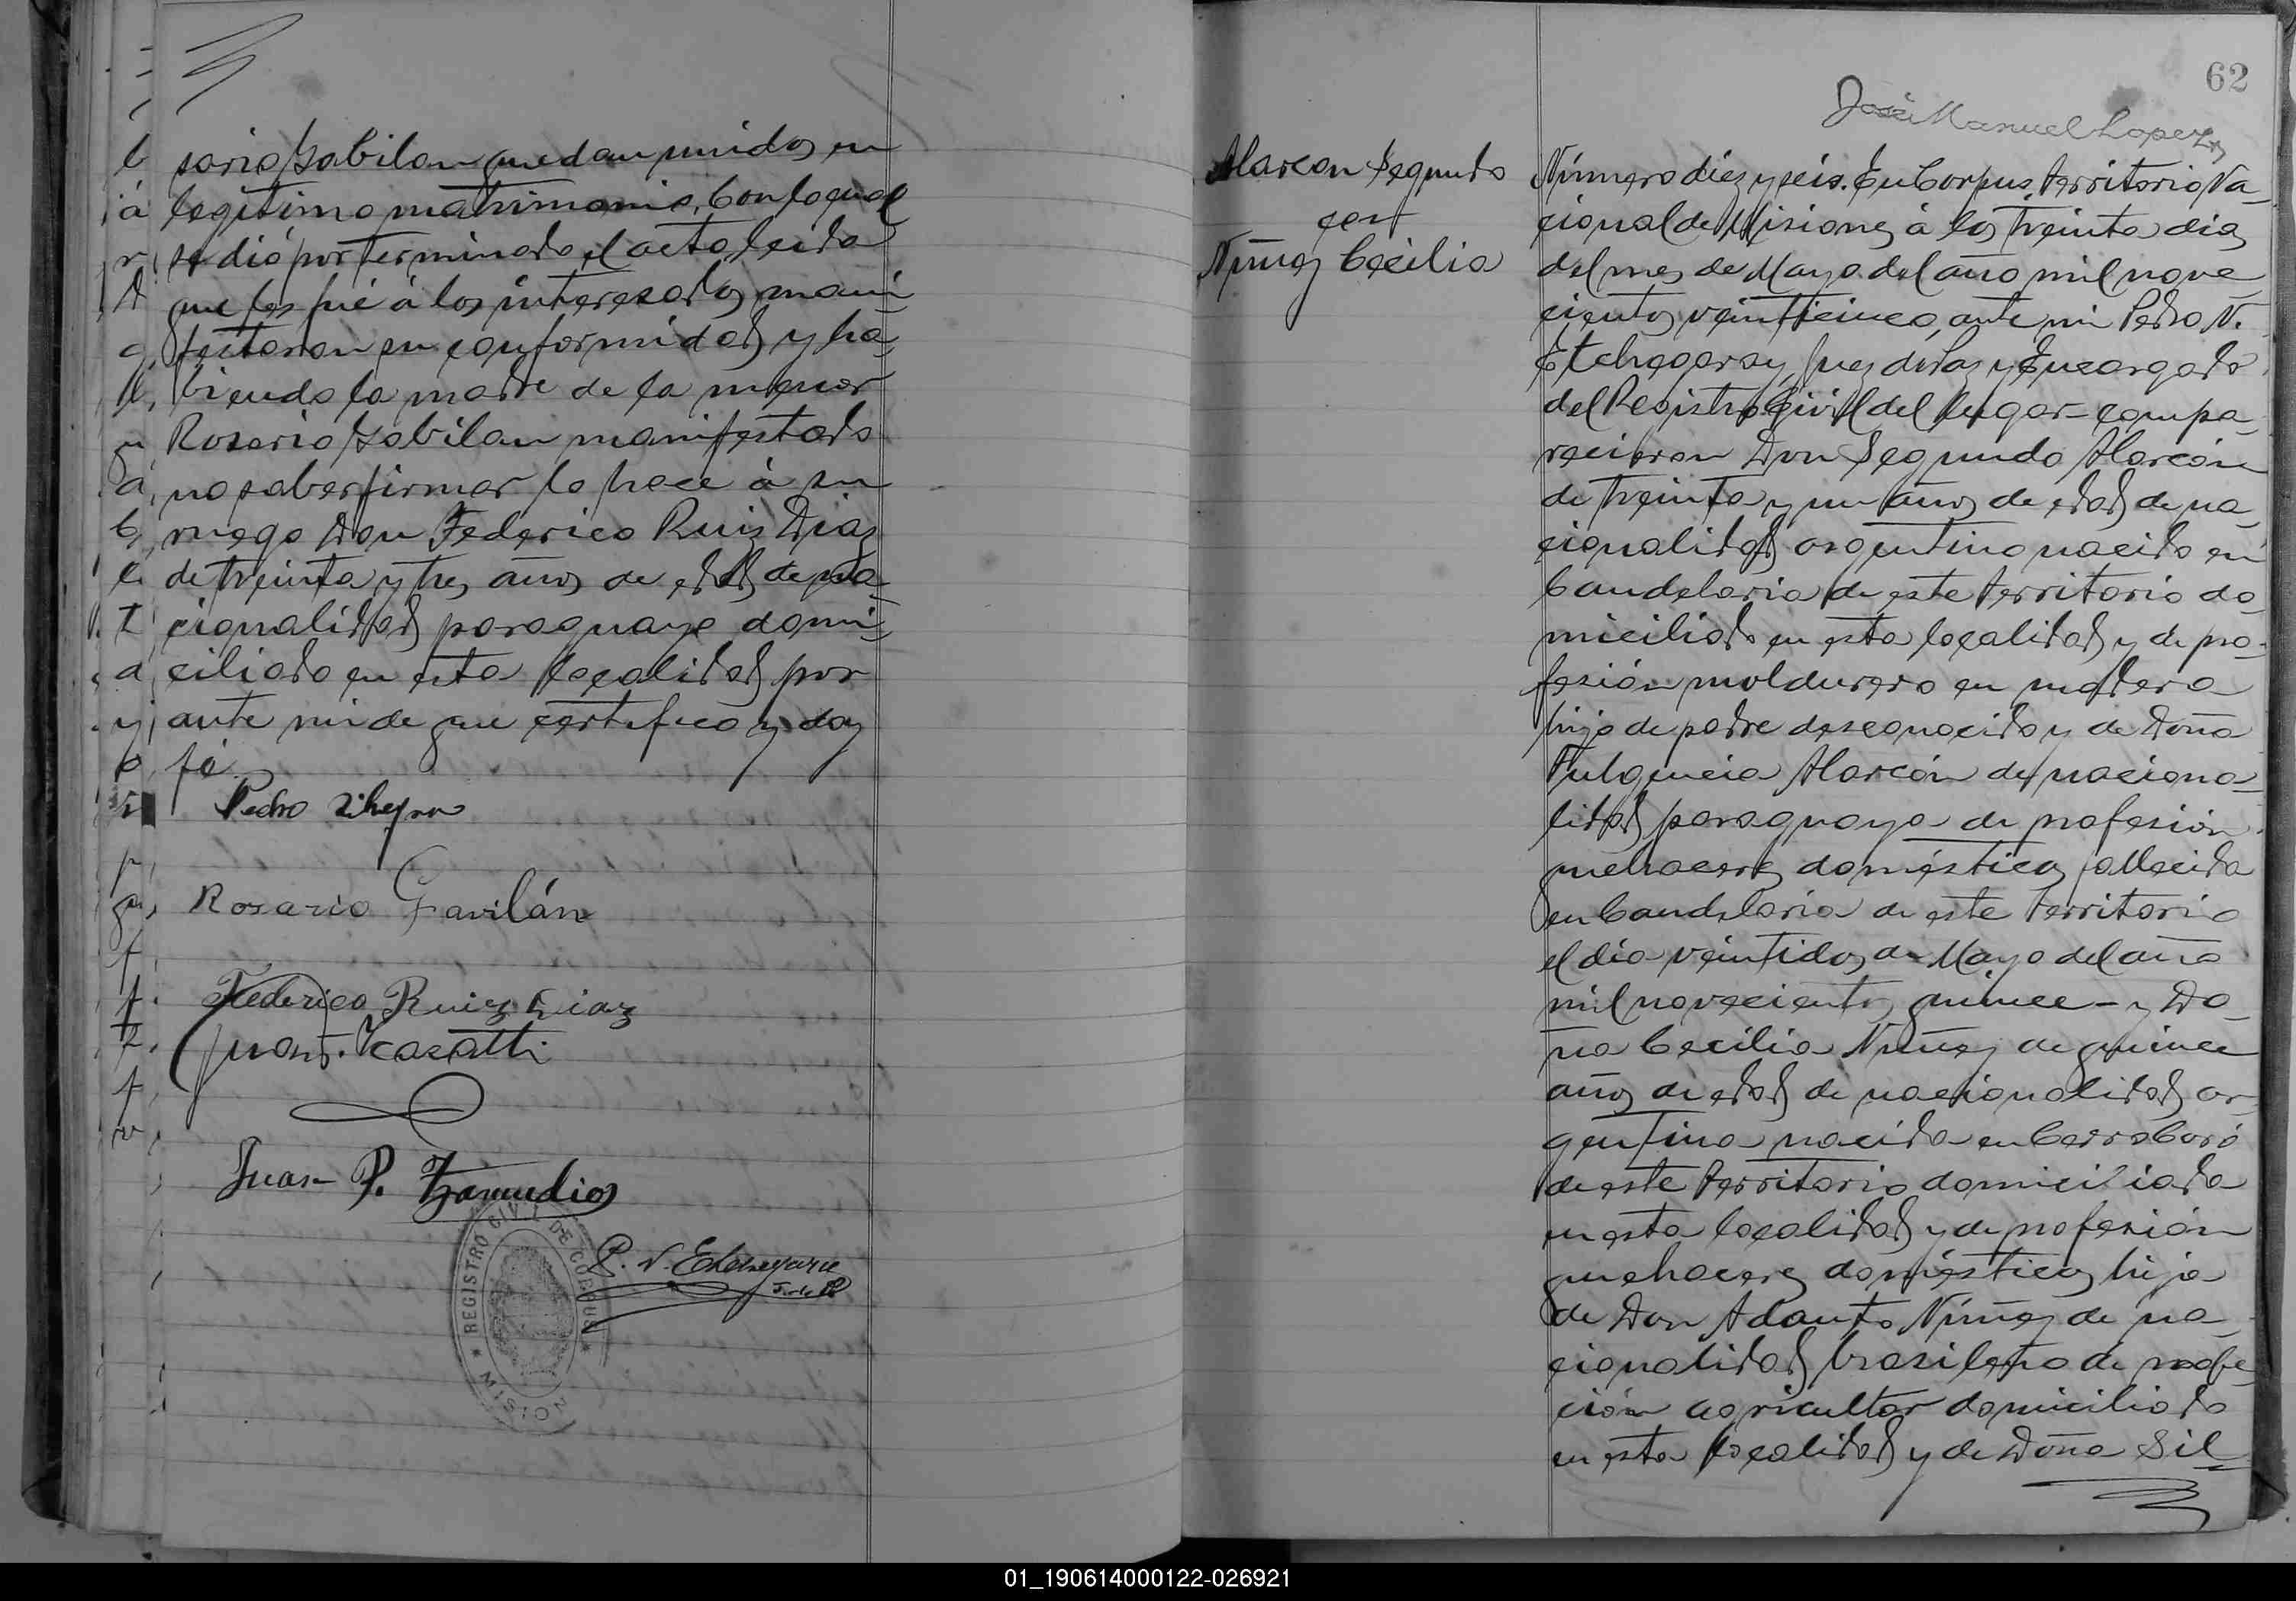 sario Gabilan quedan unidos en
legítimo matrimonio, con lo qual
se dió por terminado el acto leida
que les fué á los interesados mani-
festaron su conformidad y ha-
biendo la madre de la menor
Rosario Gabilan manifestado
no saber firmar lo hace á su
ruego Don Federico Ruiz Diaz
de treinta y tres años de edad de na-
cionalidad paraguayo domi-
ciliado en esta localidad por
ante mi de que certifico y doy
fé
Pedro
Rosario Gavilán
Federico Ruiz Diaz
Juan J. Casatti
Juan P. Zamudio
P. N. Etchegaray
REGISTRO CIVIL DE CORPUS
MISIONES
62
José Manuel Lopez
Alarcon Segundo
con
Nuñez Cecilia
Número diez y seis. En Corpus, territorio Na-
cional de Misiones á los treinta dias
del mes de Mayo del año mil nove
cientos veinticinco, ante mi Pedro N.
Etchegaray, Juez de Paz y Encargado
del Registro Civil del lugar - compa-
recieron Don Segundo Alarcón
de treinta y un años de edad de na-
cionalidad argentino nacido en
Candelaria de este territorio do-
miciliado en esta localidad y de pro-
fesión moldurero en madera
hijo de padre desconocido y de Doña
Fulgencia Alarcón de naciona-
lidad paraguaya de profesión
quehaceres domésticos fallecida
en Candelaria de este territorio
el dia veintidos de Mayo del año
mil novecientos quince - y Do-
ña Cecilia Nuñez de quince
años de edad de nacionalidad ar-
gentina nacida en Cerro Corá
de este territorio domiciliada
en esta localidad y de profesión
quehaceres domésticos hija
de Don Adauto Núñez de na-
cionalidad brasileña de profe-
ción agricultor domiciliado
en esta localidad y de Doña Sil-
01_190614000122-026921